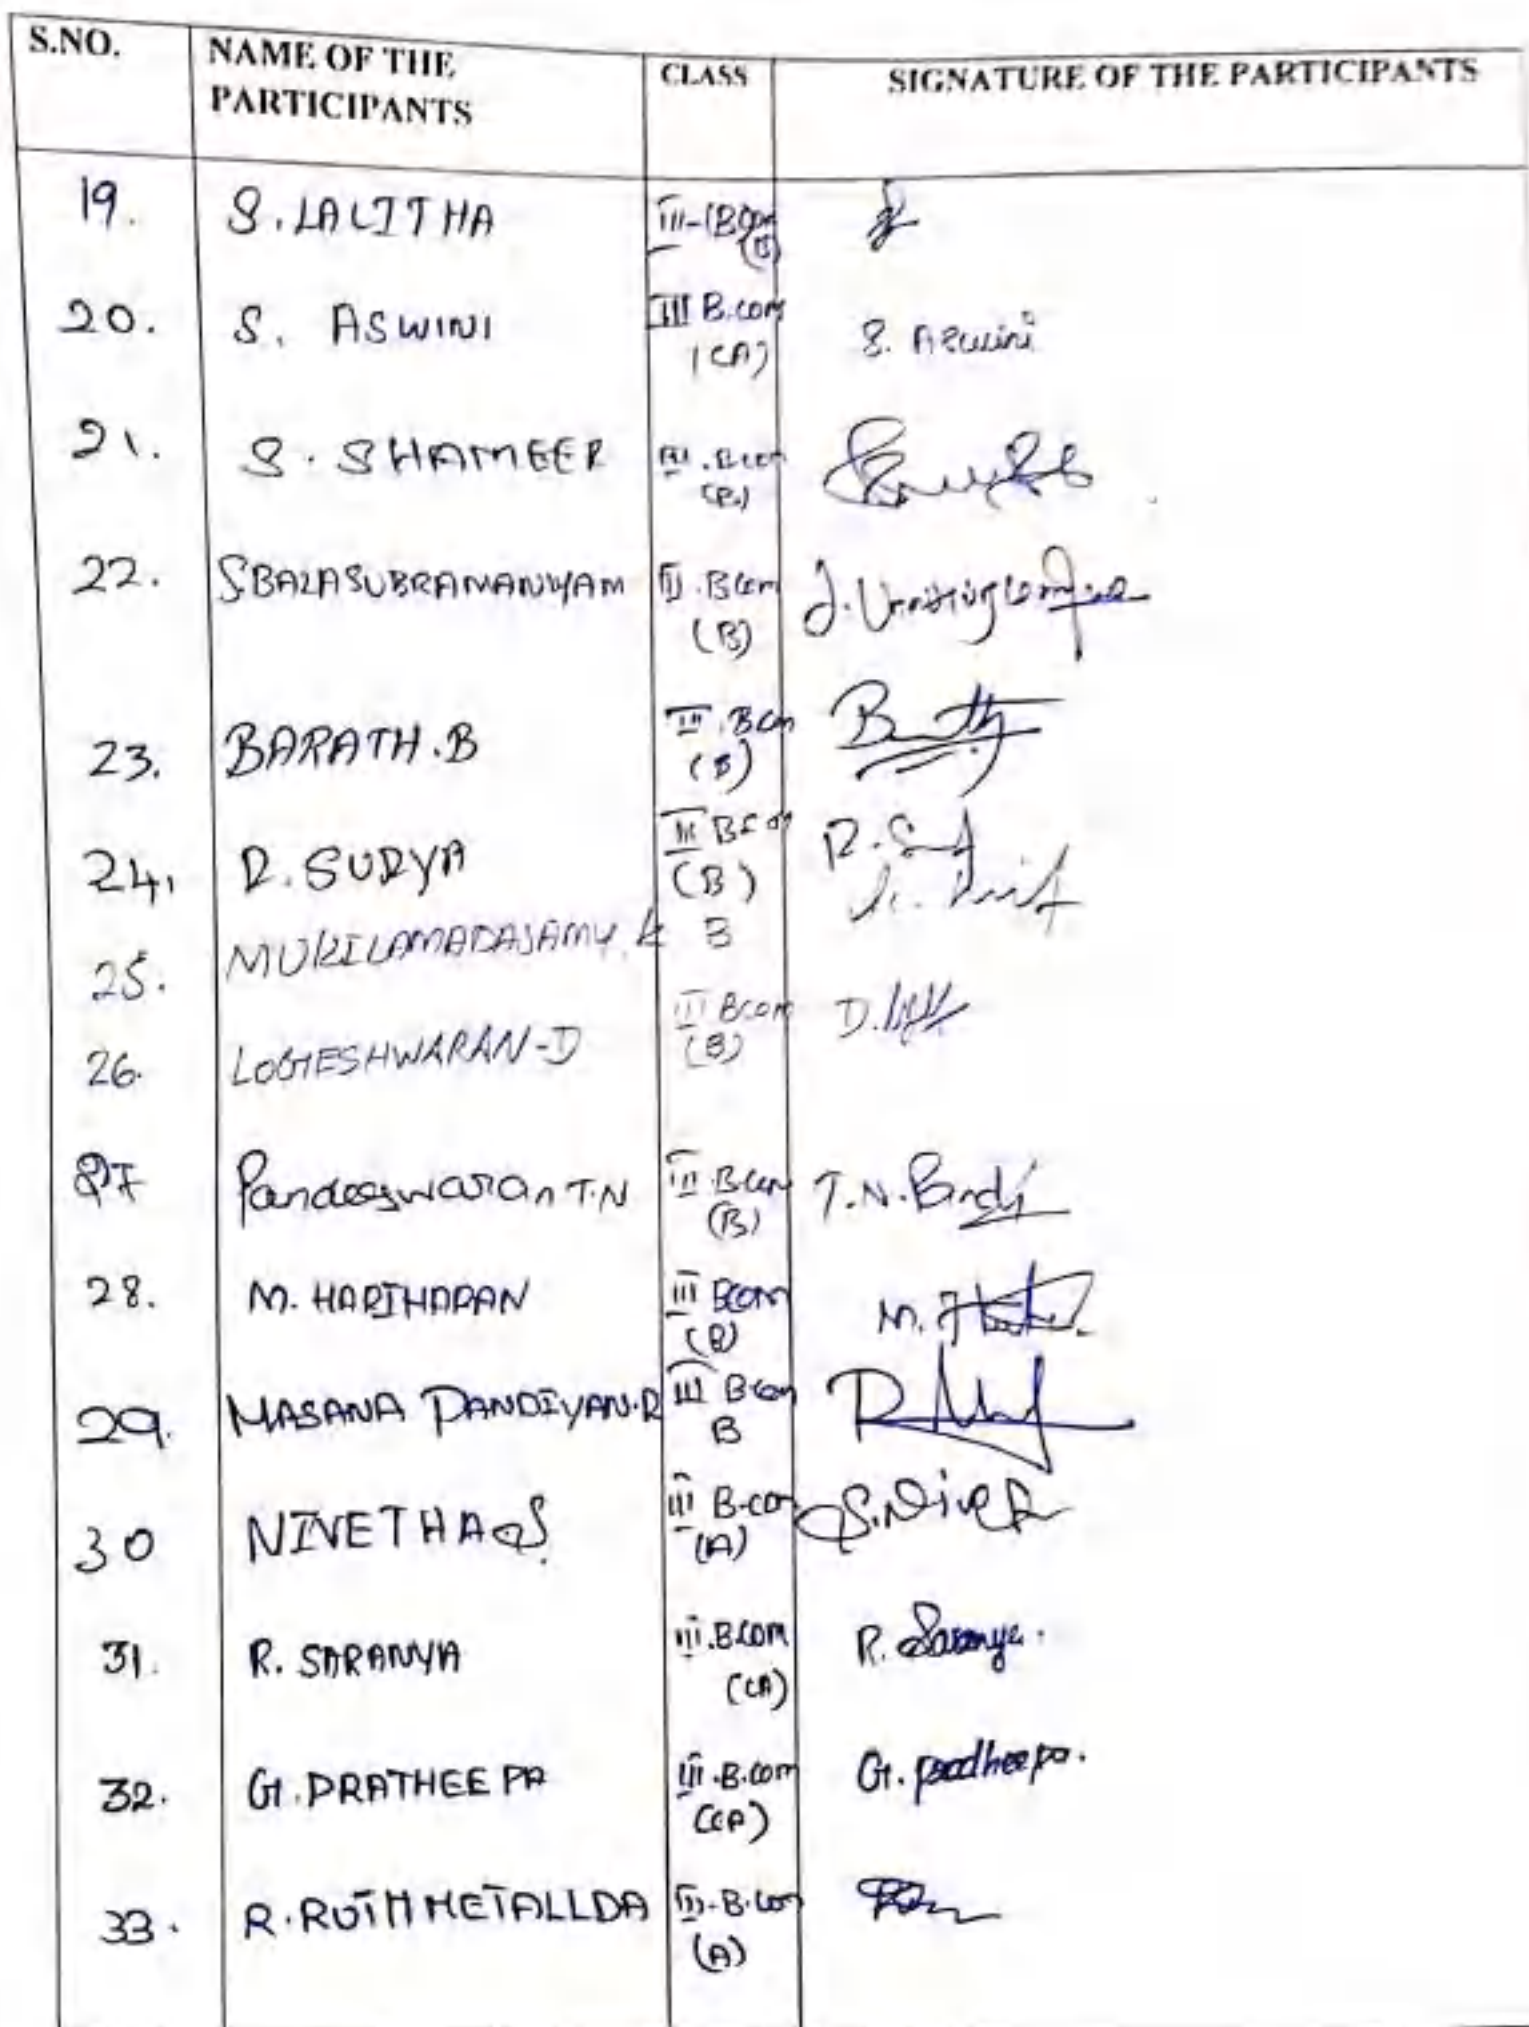 S.NO. NAME OF THE PARTICIPANTS CLASS SIGNATURE OF THE PARTICIPANTS
19. S. LALITHA III-(B.Com (B)
20. S. ASWINI III B.com (CA) S. Aswini
21. S. SHAMEER III . B.com (B)
22. S.BALASUBRAMANIYAM III . B.com (B)
23. BARATH.B III . B.com (B)
24. R. SURYA III B.com (B)
25. MUKILAMADASAMY. K B
26. LOGESHWARAN-D III B.com (B)
27 Pandeeswaran T.N III . B.com (B) T.N.
28. M. HARIHARAN III B.com (B) M.
29. MASANA PANDIYAN.R III B.com B
30 NIVETHA S. III B.com (A) S.
31. R. SARANYA III.B.com (CA) R. Saranya.
32. G. PRATHEEPA III.B.com (CA) G. pradheepa.
33. R. RUTH METALLDA III-B.com (A)